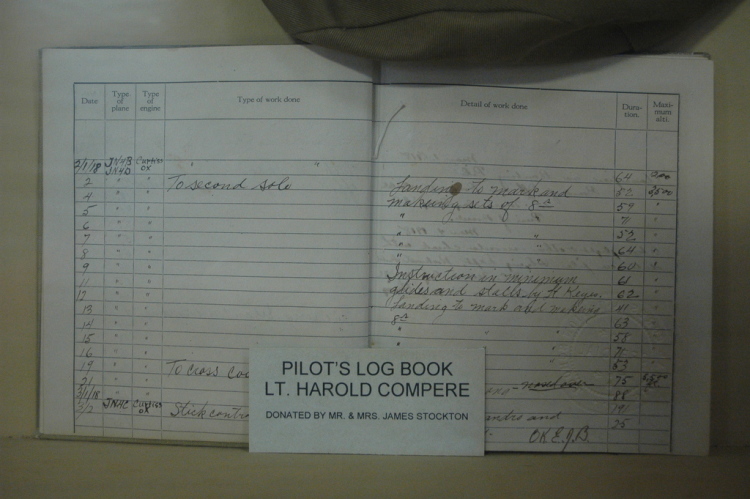 Date Type of plane Type of engine Type of work done Detail of work done Dura-tion. Maxi-mum alti.
2/1/18 JN4B Curtiss " " 64
JN4D OX
2 " " To second solo Landing to mark and 52
4 " " making sets of 8s 59 "
5 " " " 71 "
6 " " " 52 "
7 " " " 64 "
8 " " " 60 "
9 " " Instruction in minimum 61 "
11 " " glides and stalls by 62 "
12 " " Landing to mark and making "
13 " " 8s 63 "
14 " " " " 58 "
15 " "
16 " "
19 " " To cross
21 " " 75
3/1/18 " " 88
JN4C Curtiss OX Stick and 25
OK E.J.B.
PILOT'S LOG BOOK
LT. HAROLD COMPERE
DONATED BY MR. & MRS. JAMES STOCKTON